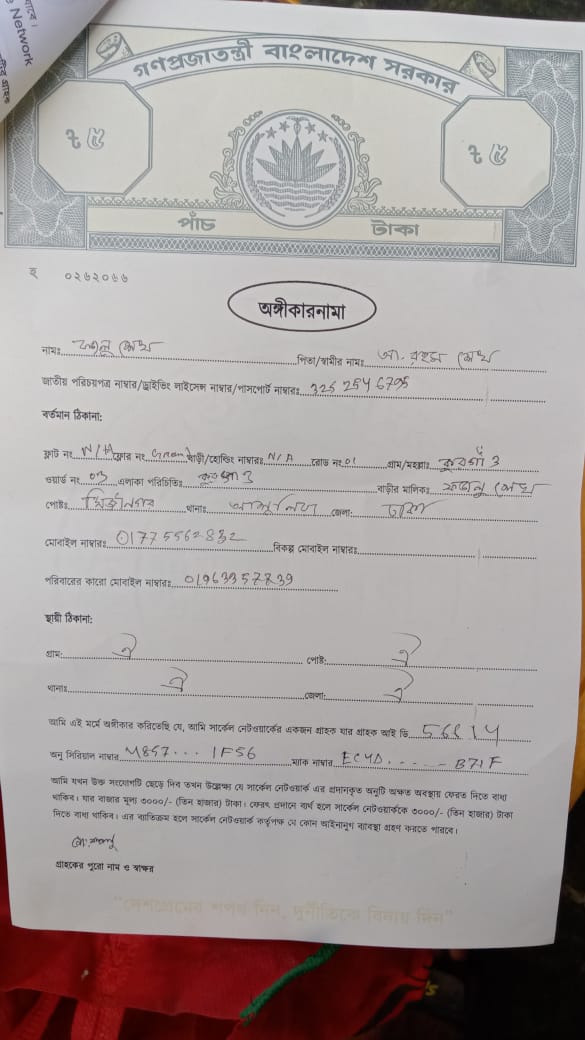 Network
গ্রাহক
গণপ্রজাতন্ত্রী বাংলাদেশ সরকার
৳ ৫
৳ ৫
পাঁচ টাকা
হ ০২৬২০৬৬
অঙ্গীকারনামা
নামঃ ফজলু শেখ পিতা/স্বামীর নামঃ আ. রহমান শেখ
জাতীয় পরিচয়পত্র নাম্বার/ড্রাইভিং লাইসেন্স নাম্বার/পাসপোর্ট নাম্বারঃ 325 254 6795
বর্তমান ঠিকানা:
ফ্লাট নং N/A ফ্লোর নং Ground বাড়ী/হোল্ডিং নাম্বারঃ N/A রোড নং 01 গ্রাম/মহল্লাঃ কুরগাঁ 3
ওয়ার্ড নং 03 এলাকা পরিচিতিঃ বাড়ীর মালিকঃ ফজলু শেখ
পোষ্টঃ মির্জানগর থানাঃ আশুলিয়া জেলা: ঢাকা
মোবাইল নাম্বারঃ 01775562832 বিকল্প মোবাইল নাম্বারঃ
পরিবারের কারো মোবাইল নাম্বারঃ 01963357839
স্থায়ী ঠিকানা:
গ্রাম: ঐ পোষ্ট: ঐ
থানাঃ ঐ জেলা: ঐ
আমি এই মর্মে অঙ্গীকার করিতেছি যে, আমি সার্কেল নেটওয়ার্কের একজন গ্রাহক যার গ্রাহক আই ডি 56614
অনু সিরিয়াল নাম্বার M857... 1F56 ম্যাক নাম্বার EC4D. . - - - - B71F
আমি যখন উক্ত সংযোগটি ছেড়ে দিব তখন উল্লেক্ষ্য যে সার্কেল নেটওয়ার্ক এর প্রদানকৃত অনুটি অক্ষত অবস্থায় ফেরত দিতে বাধ্য
থাকিব। যার বাজার মূল্য ৩০০০/- (তিন হাজার) টাকা। ফেরৎ প্রদানে ব্যর্থ হলে সার্কেল নেটওয়ার্ককে ৩০০০/- (তিন হাজার) টাকা
দিতে বাধ্য থাকিব। এর ব্যতিক্রম হলে সার্কেল নেটওয়ার্ক কর্তৃপক্ষ যে কোন আইনানুগ ব্যবস্থা গ্রহণ করতে পারবে।
গ্রাহকের পুরো নাম ও স্বাক্ষর
"দেশপ্রেমের শপথ নিন, দুর্নীতিকে বিদায় দিন"